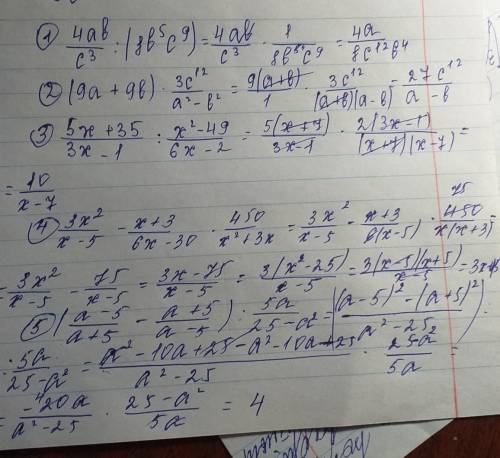 ① 4ab/c³ : (8b⁵c⁹) = 4ab/c³ · 1/8b⁵c⁹ = 4a/8c¹²b⁴
② (9a + 9b) · 3c¹²/a² – b² = 9(a+b)/1 · 3c¹²/(a+b)(a-b) = 27c¹²/a – b
③ 5x + 35/3x – 1 : x² – 49/6x – 2 = 5(x+7)/3x-1 · 2(3x-1)/(x+7)(x-7) =
= 10/x-7
④ 3x²/x-5 – x+3/6x-30 · 450/x²+3x = 3x²/x-5 - x+3/6(x-5) · 75 450/x(x+3) =
= 3x²/x-5 – 75/x-5 = 3x-75/x-5 = 3(x²-25)/x-5 = 3(x-5)(x+5)/x-5 =
⑤ (a-5/a+5 – a+5/a-5) : 5a/25-a² = ((a-5)² – (a+5)²/a²-25)
: 5a/25-a² = a² – 10a + 25 – a² – 10a + 25/a² – 25 · 25-a²/5a =
= -20a/a²-25 · 25-a²/5a = 4